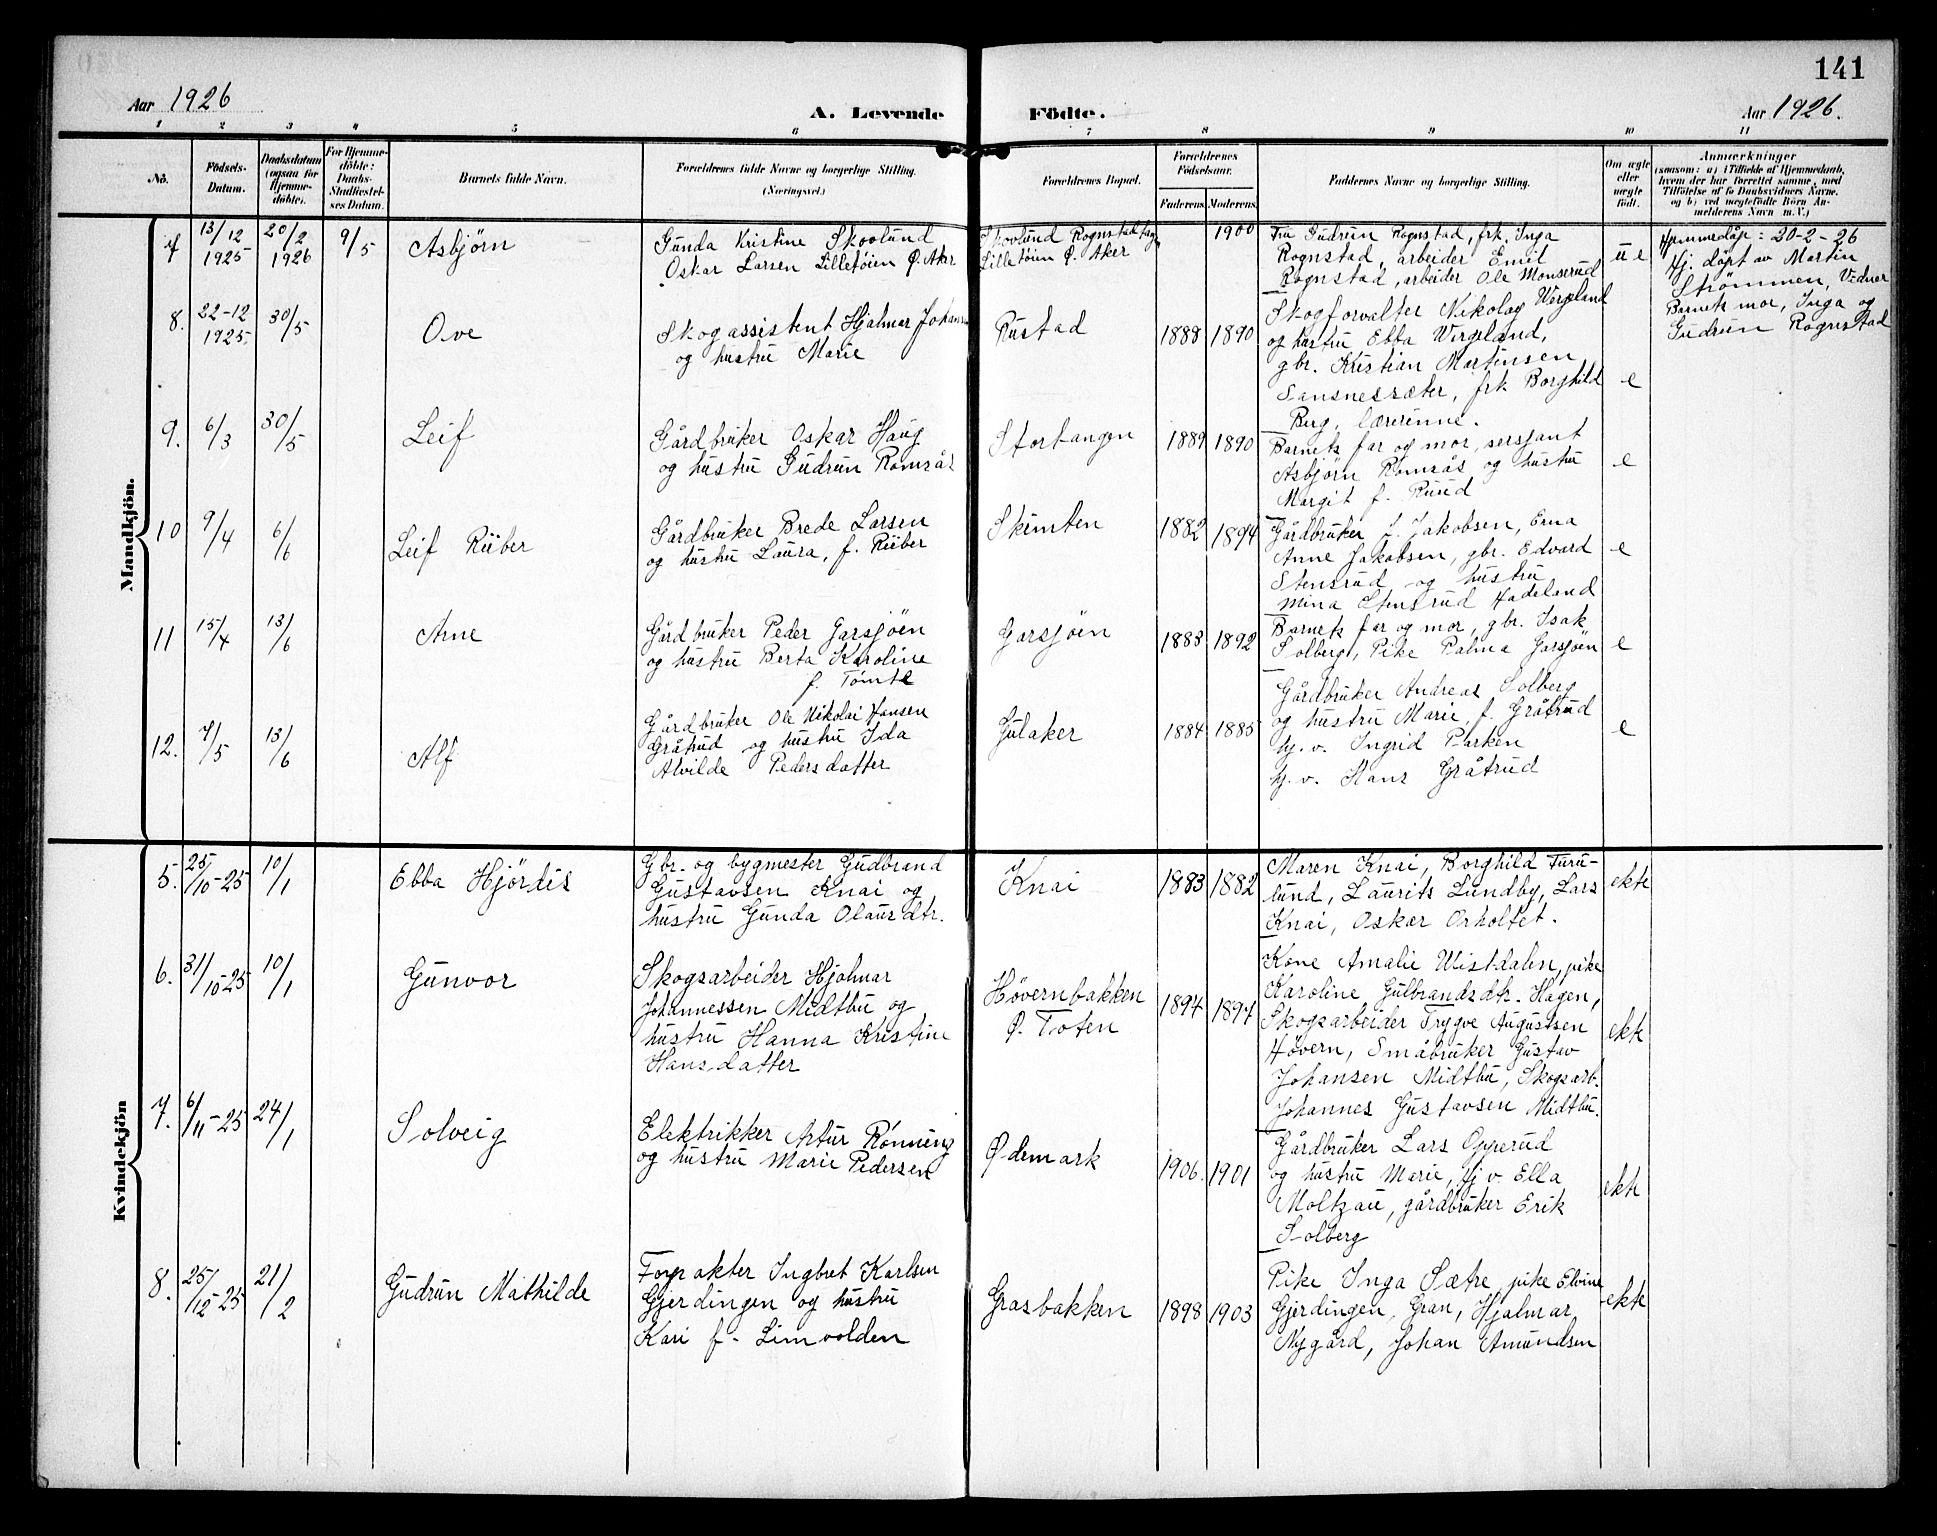 141
Aar 1926
A. Levende Födte.
Aar 1926.
1 2 3 4 5 6 7 8 9 10 11
No.
Födsels-Datum.
Daabsdatum (ogsaa for Hjemme-döbte).
For Hjemme-döbte: Daabs-Stadfæstel-ses Datum.
Barnets fulde Navn.
Forældrenes fulde Navne og borgerlige Stilling. (Næringsvei.)
Forældrenes Bopæl.
Forældrenes Födselsaar.
Faderens. Moderens.
Faddernes Navne og borgerlige Stilling.
Om ægte eller uægte födt.
Anmærkninger
(saasom: a) i Tilfælde af Hjemmedaab,
hvem der har forrettet samme, med
Tilföielse af to Daabsvidners Navne,
og b) ved uægtefödte Börn An-
melderens Navn m. V.)
Mandkjön.
7 13/12 1925 20/2 1926 9/5 Asbjörn
Gunda Kristine Skovlund
Oskar Larsen Lilletöien Ø. Aker
Skovlund Rognstad
Lilletöien Ø. Aker
1900
Fru Gudrun Rognstad, frk. Inga
Rognstad, arbeider Emil
Rognstad, arbeider Ole Monserud
u e
Hjemmedåp: 20-2-26
Hj. döpt av Martin
Strømmen, Vidner
Barnets mor, Inga og
Gudrun Rognstad
8. 22-12 1925. 30/5 Ove
Skogassistent Hjalmar Johans
og hustru Marie
Rustad
1888 1890
Skogforvalter Nikolay Wergeland
og hustru Ebba Wergeland,
gbr. Kristian Martinsen
Sansnessæter, frk Borghild
Berg, lærerinne.
e
9. 6/3 30/5 Leif
Gårdbruker Oskar Haug
og hustru Gudrun Romsås
Stortangen
1889 1890
Barnets far og mor, sersjant
Asbjörn Romsås og hustru
Margit f. Ruud
e
10 9/4 6/6 Leif Riiber
Gårdbruker Brede Larsen
og hustru Laura, f. Riiber
Skimten
1882 1894
Gårdbruker L. Jakobsen, Erna
Anne Jakobsen, gbr. Edvard
Stensrud og hustru
Mina Stensrud Hadeland
e
11 15/4 13/6 Arne
Gårdbruker Peder Garsjöen
og hustru Berta Karoline
f. Tömte
Garsjöen
1883 1892
Barnets far og mor, gbr. Isak
Solberg, Pike Palma Garsjöen
e
12. 7/5 13/6 Alf
Gårdbruker Ole Nikolai Hansen
Gråtrud og hustru Ida
Alvilde Pedersdatter
Gulaker
1884 1885
Gårdbruker Andreas Solberg
og hustru Marie f. Gråtrud
hj. v. Ingrid Parken
hj. v. Hans Gråtrud
e
Kvindekjön
5. 25/10-25 10/1 Ebba Hjördis
Gbr. og bygmester Gudbrand
Gustavsen Knai og
hustru Gunda Olausdtr.
Knai
1883 1882
Maren Knai, Borghild Furu-
lund, Laurits Lundby, Lars
Knai, Oskar Orholtet.
ekte
6. 31/10-25 10/1 Gunvor
Skogsarbeider Hjalmar
Johannessen Midthu og
hustru Hanna Kristine
Hansdatter
Hövernbakken
Ø. Toten
1894 1894
Kone Amalie Wistdalen, pike
Karoline Gulbrandsdtr. Hagen,
Skogsarbeider Trygve Augustsen
Hövern, Småbruker Gustav
Johansen Midthu, Skogsarb.
Johannes Gustavsen Midthu.
ekte
7. 6/11-25 24/1 Solveig
Elektrikker Artur Rönning
og hustru Marie Pedersen
Ødemark
1906. 1901
Gårdbruker Lars Opperud
og hustru Marie, hj v. Ella
Moltzau, gårdbruker Erik
Solberg
ekte
8. 25/12-25 21/2 Gudrun Mathilde
Forpakter Ingbret Karlsen
Gjerdingen og hustru
Kari f. Limvolden
Grasbakken
1898 1903
Pike Inga Sætre, pike Elvine
Gjerdingen, Gran, Hjalmar
Nygård, Johan Amundsen
ekte